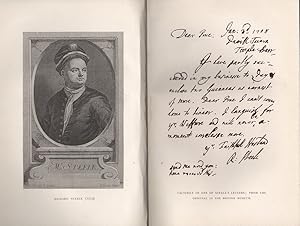 Mr STEELE
RICHARD STEELE
Dear Prue,
Temple-Barr
I have partly suc-
ceeded in my business to Day
& inclose two Guineas as earnest
of more. Dear Prue I can't come
home to dinner. I languish for
yr Welfare and will never a
moment careless more.
Yr Faithfull Husband
R: Steele
Send me word you
have received this.
FACSIMILE OF ONE OF STEELE'S LETTERS; FROM THE
ORIGINAL IN THE BRITISH MUSEUM.